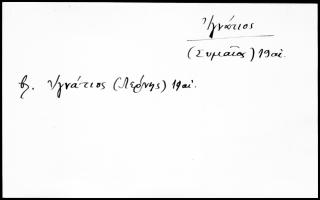 Ἰγνάτιος
(Συμαῖος) 19αἰ.
βλ. Ἰγνάτιος (Λέρνης) 19αἰ.